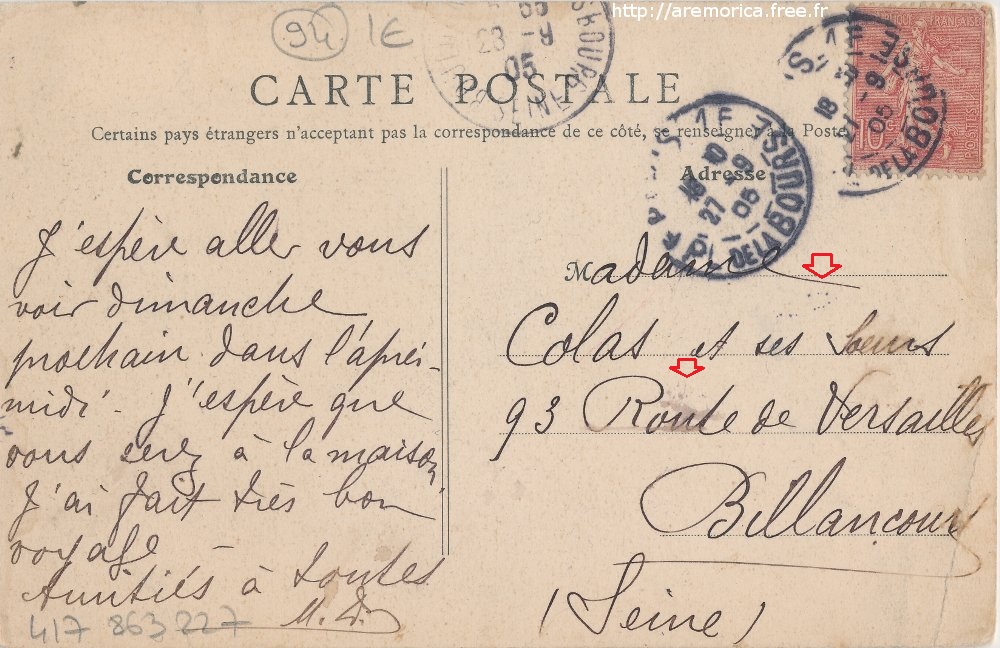 http://aremorica.free.fr
94 1€
CARTE POSTALE
Certains pays étrangers n'acceptant pas la correspondance de ce côté, se renseigner à la Poste
Correspondance
J'espère aller vous
voir dimanche
prochain dans l'après-
midi - J'espère que
vous serez à la maison
J'ai fait très bon
voyage -
Amitiés à toutes
M. D.
417 863 227
Adresse
Madame
Colas et ses soeurs
93 Route de Versailles
Billancourt
(Seine)
PL. DE LA BOURSE
27 - 9
05
28 - 9
05
RÉPUBLIQUE FRANÇAISE
10c
POSTES
DE LA BOURSE
9
05